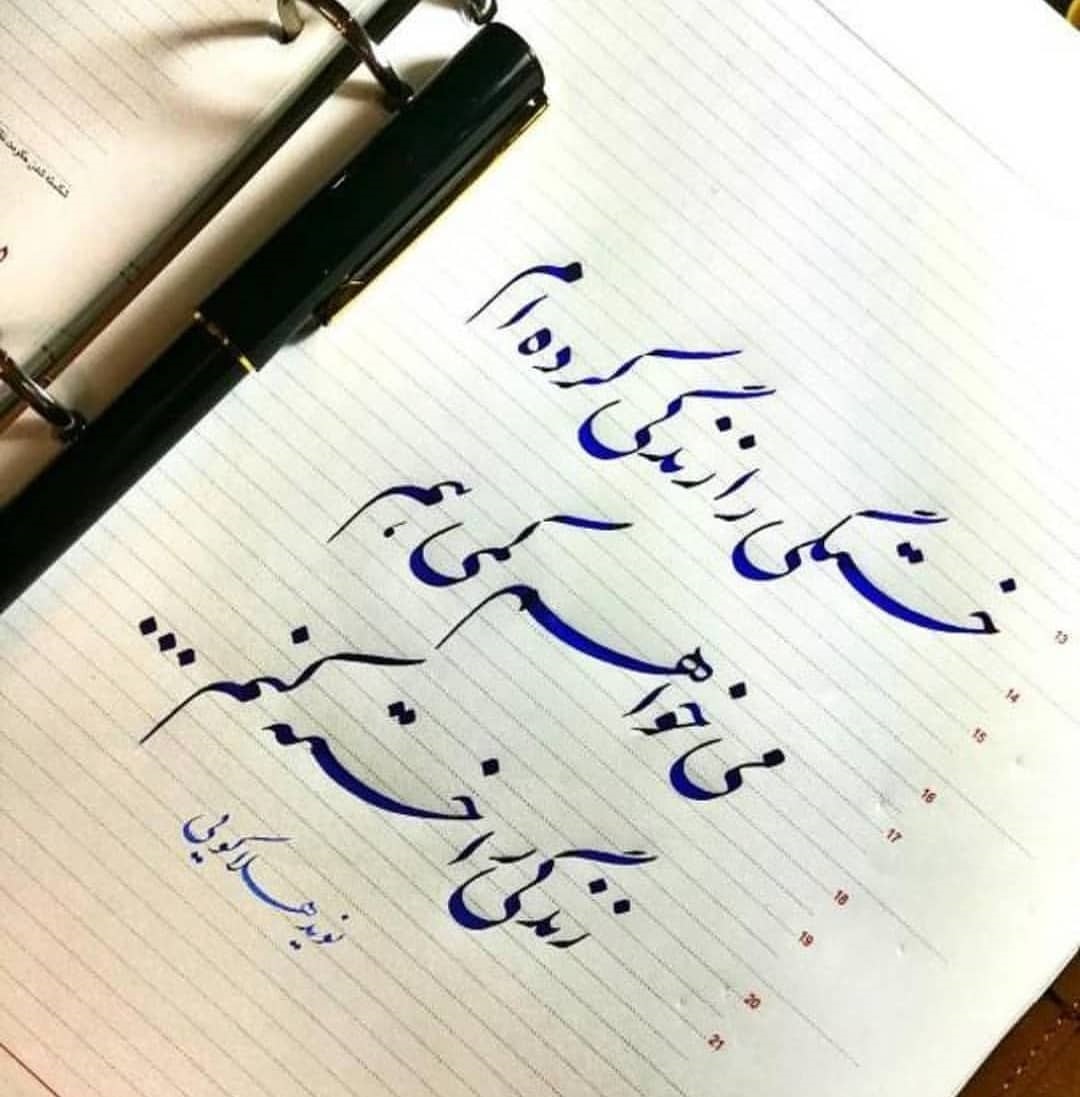 خستگی را زندگی کرده ام
می خواهم کمی هم
زندگی را خسته کنم...
نوید هلاکویی
13
14
15
16
17
18
19
20
21